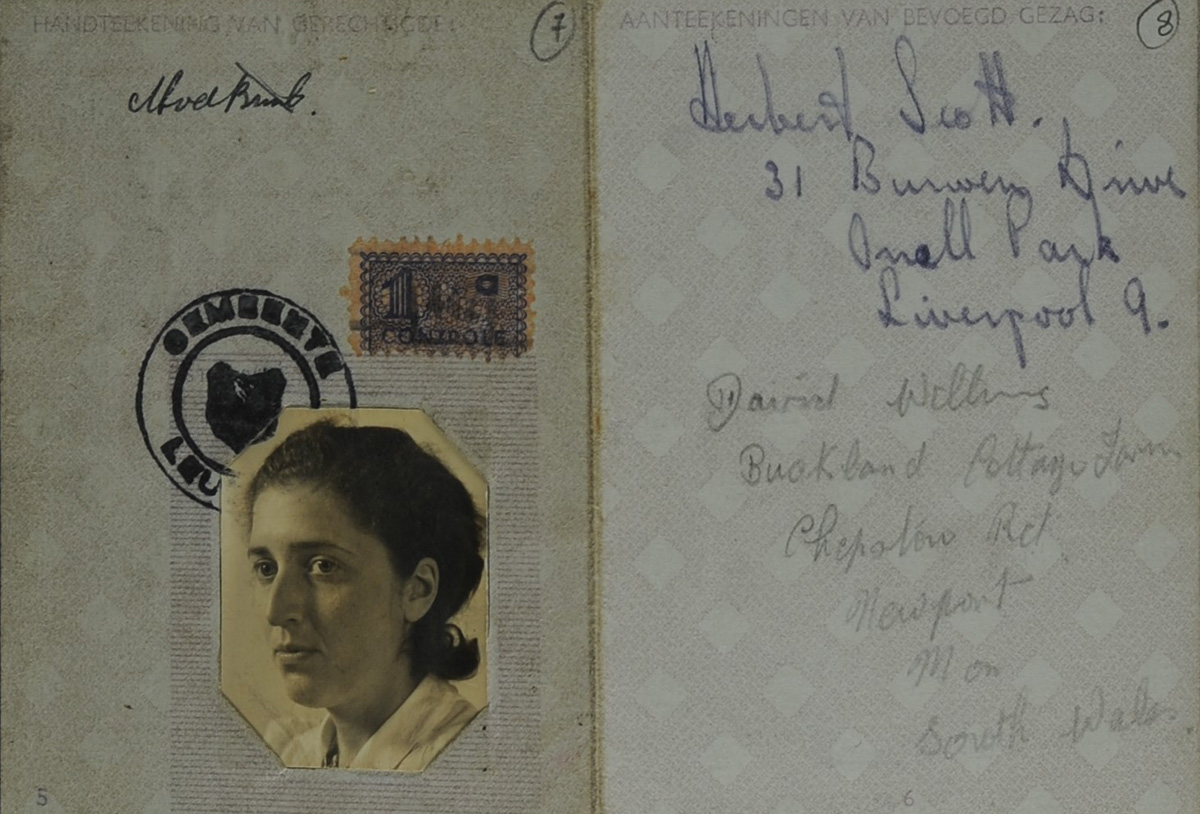 HANDTEEKENING VAN GERECHTIGDE:
7
1 C
CONTROLE
GEMEENTE
LEU
5
AANTEEKENINGEN VAN BEVOEGD GEZAG:
8
Herbert Scott.
31 Drive
Park
Liverpool 9.
David
Buckland Cottage Farm
Chepstow Rd
Newport
Mon
South Wales.
6